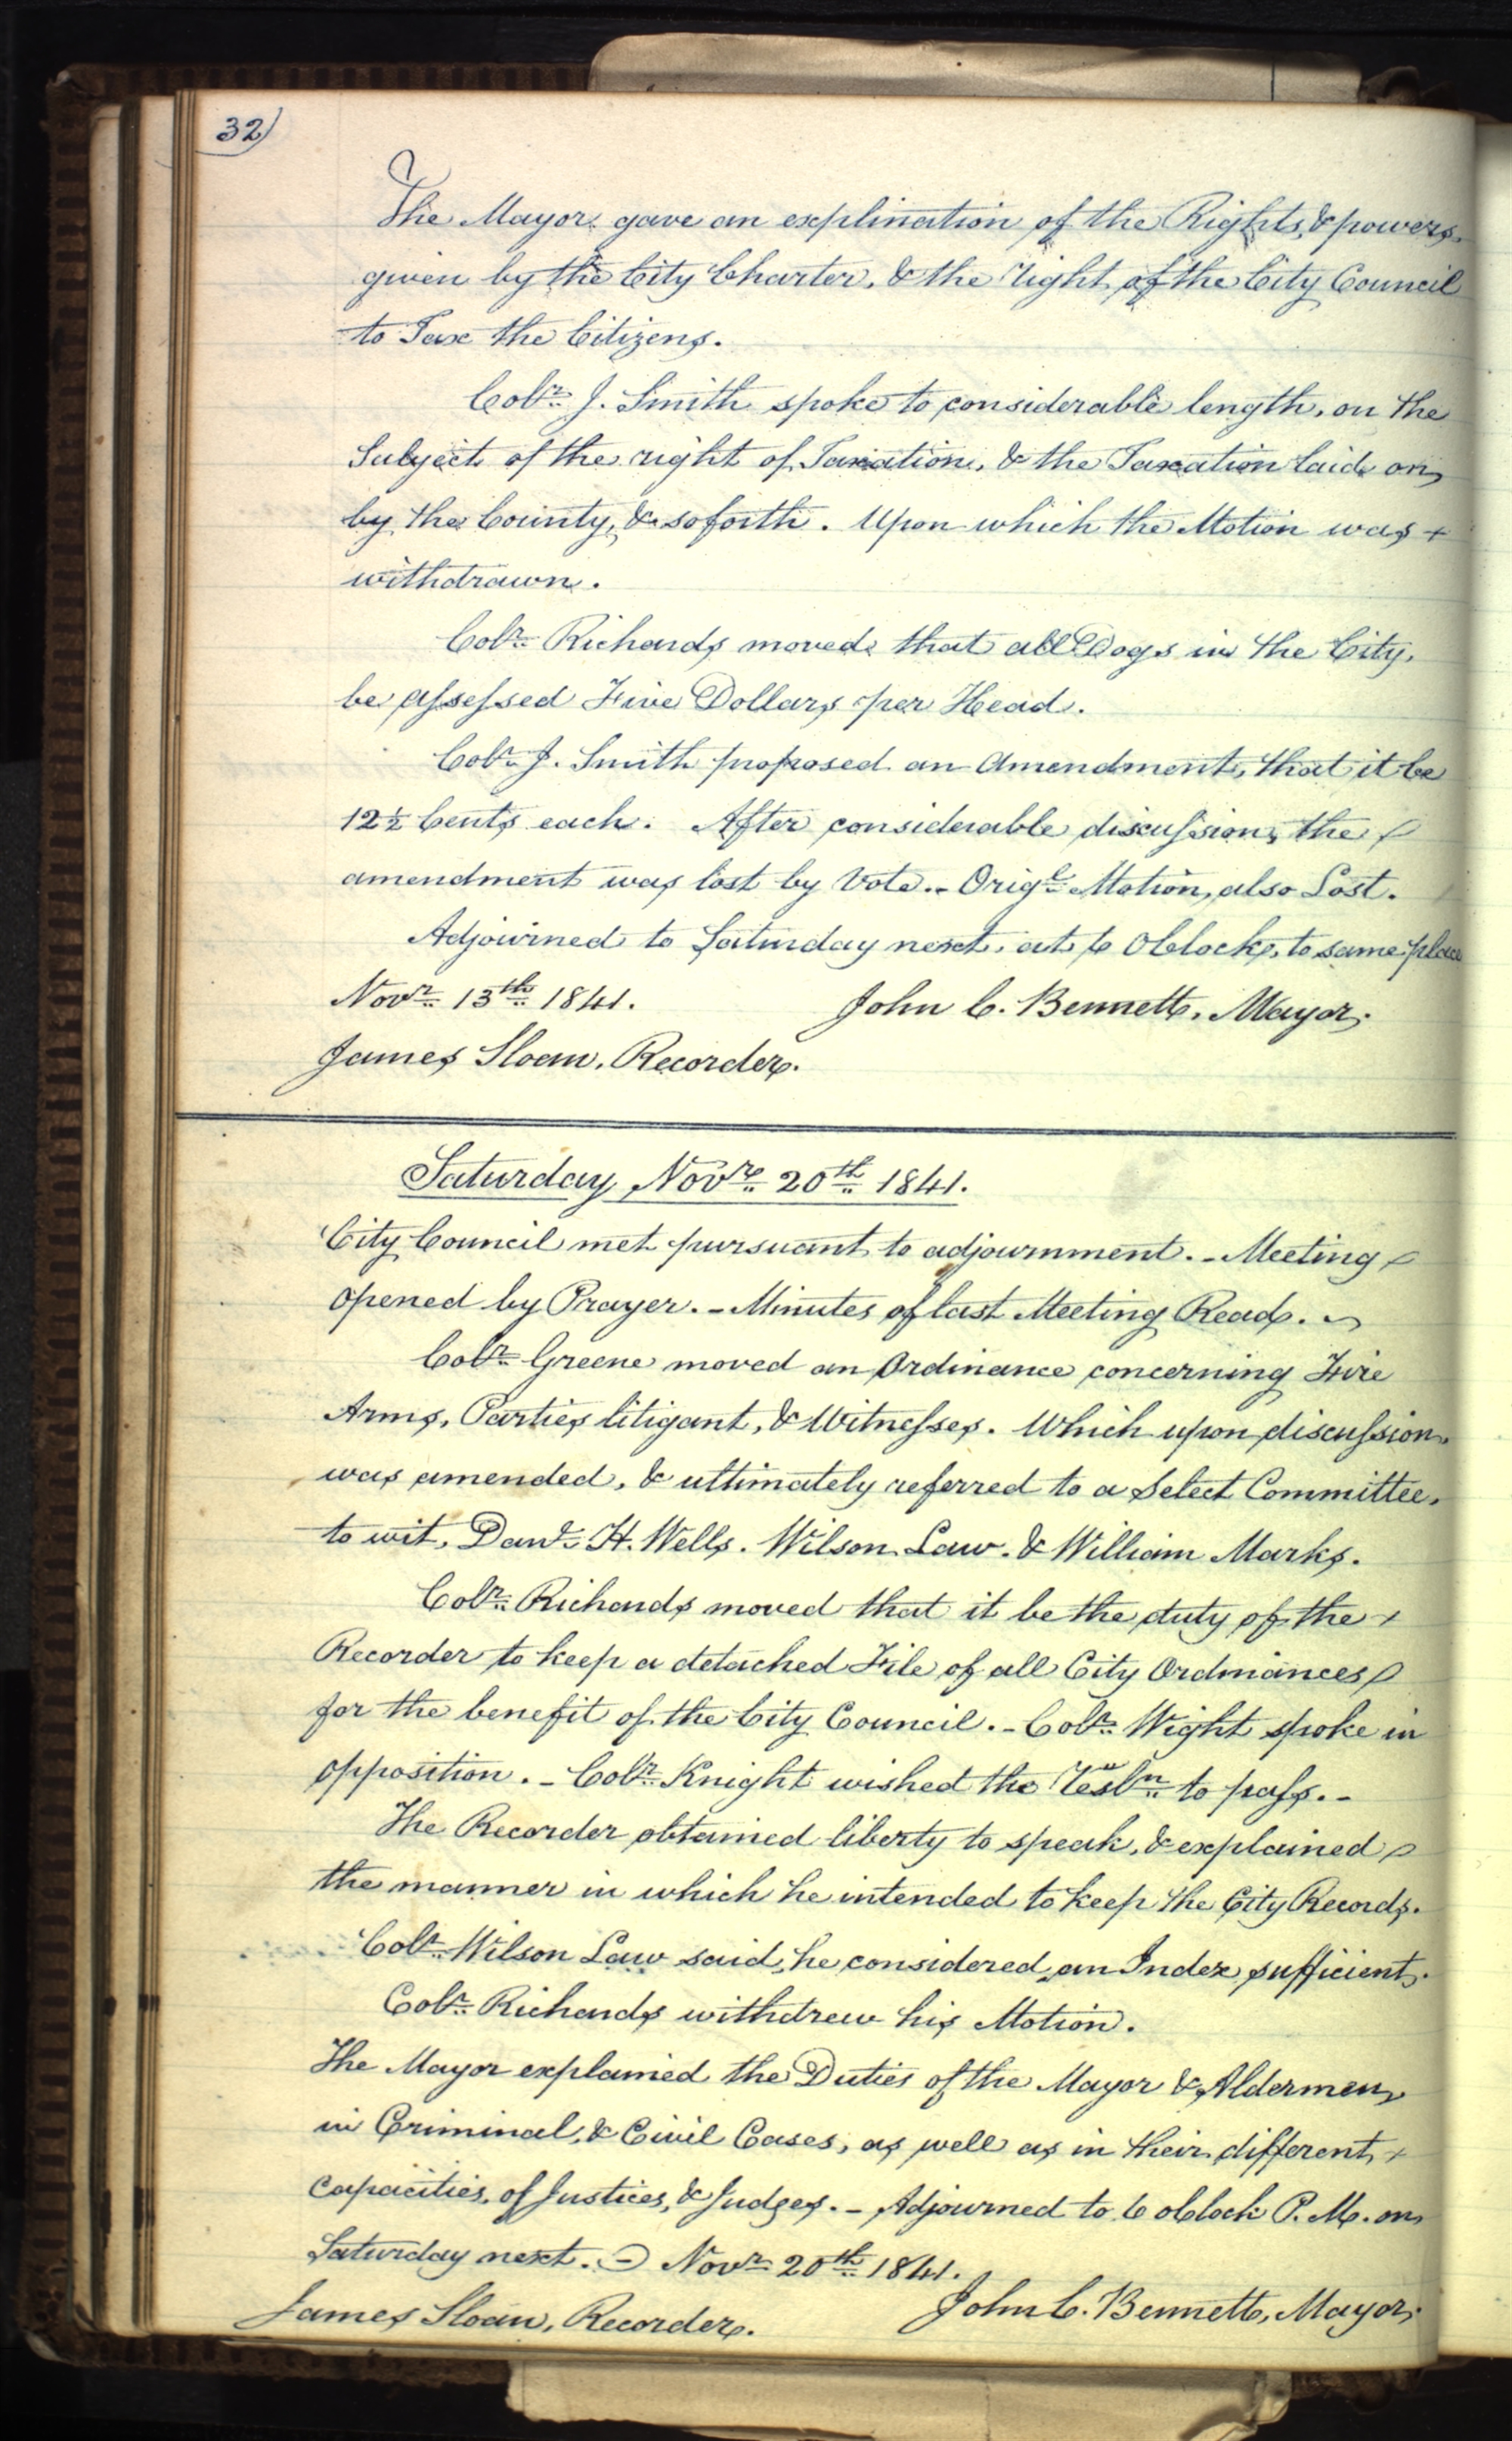 32)
The Mayor gave an explination of the Rights, & powers
given by the City Charter, & the right of the City Council
to Tax the Citizens.
Colr. J. Smith spoke to considerable length, on the
Subject of the right of Taxation, & the Taxation laid on
by the County, & so forth. Upon which the Motion was
withdrawn.
Colr. Richards moved that all Dogs in the City,
be assessed Five Dollars per Head.
Colr. J. Smith proposed an Amendment, that it be
12½ Cents each. After considerable discussion, the
amendment was lost by Vote. - Origl. Motion, also Lost.
Adjourned to Saturday next, at 6 OClock, to same place
Novr. 13th. 1841. John C. Bennett, Mayor,
James Sloan, Recorder.
Saturday, Novr. 20th. 1841.
City Council met pursuant to adjournment. - Meeting
opened by Prayer. - Minutes of last Meeting Read. -
Colr. Greene moved an Ordinance concerning Fire
Arms, Parties litigant, & Witnesses. Which upon discussion
was amended, & ultimately referred to a Select Committee,
to wit, Danl. H. Wells. Wilson Law. & William Marks.
Colr. Richards moved that it be the duty of the
Recorder to keep a detached File of all City Ordinances
for the benefit of the City Council. - Colr. Wight spoke in
opposition. - Colr. Knight wished the to pass. -
The Recorder obtained liberty to speak, & explained
the manner in which he intended to keep the City Records.
Colr. Wilson Law said, he considered an Index sufficient.
Colr. Richards withdrew his Motion.
The Mayor explained the Duties of the Mayor & Aldermen,
in Criminal, & Civil Cases, as well as in their different
capacities, of Justices, & Judges. - Adjourned to 6 oClock P.M. on
Saturday next. - Novr. 20th. 1841.
James Sloan, Recorder. John C. Bennett, Mayor,